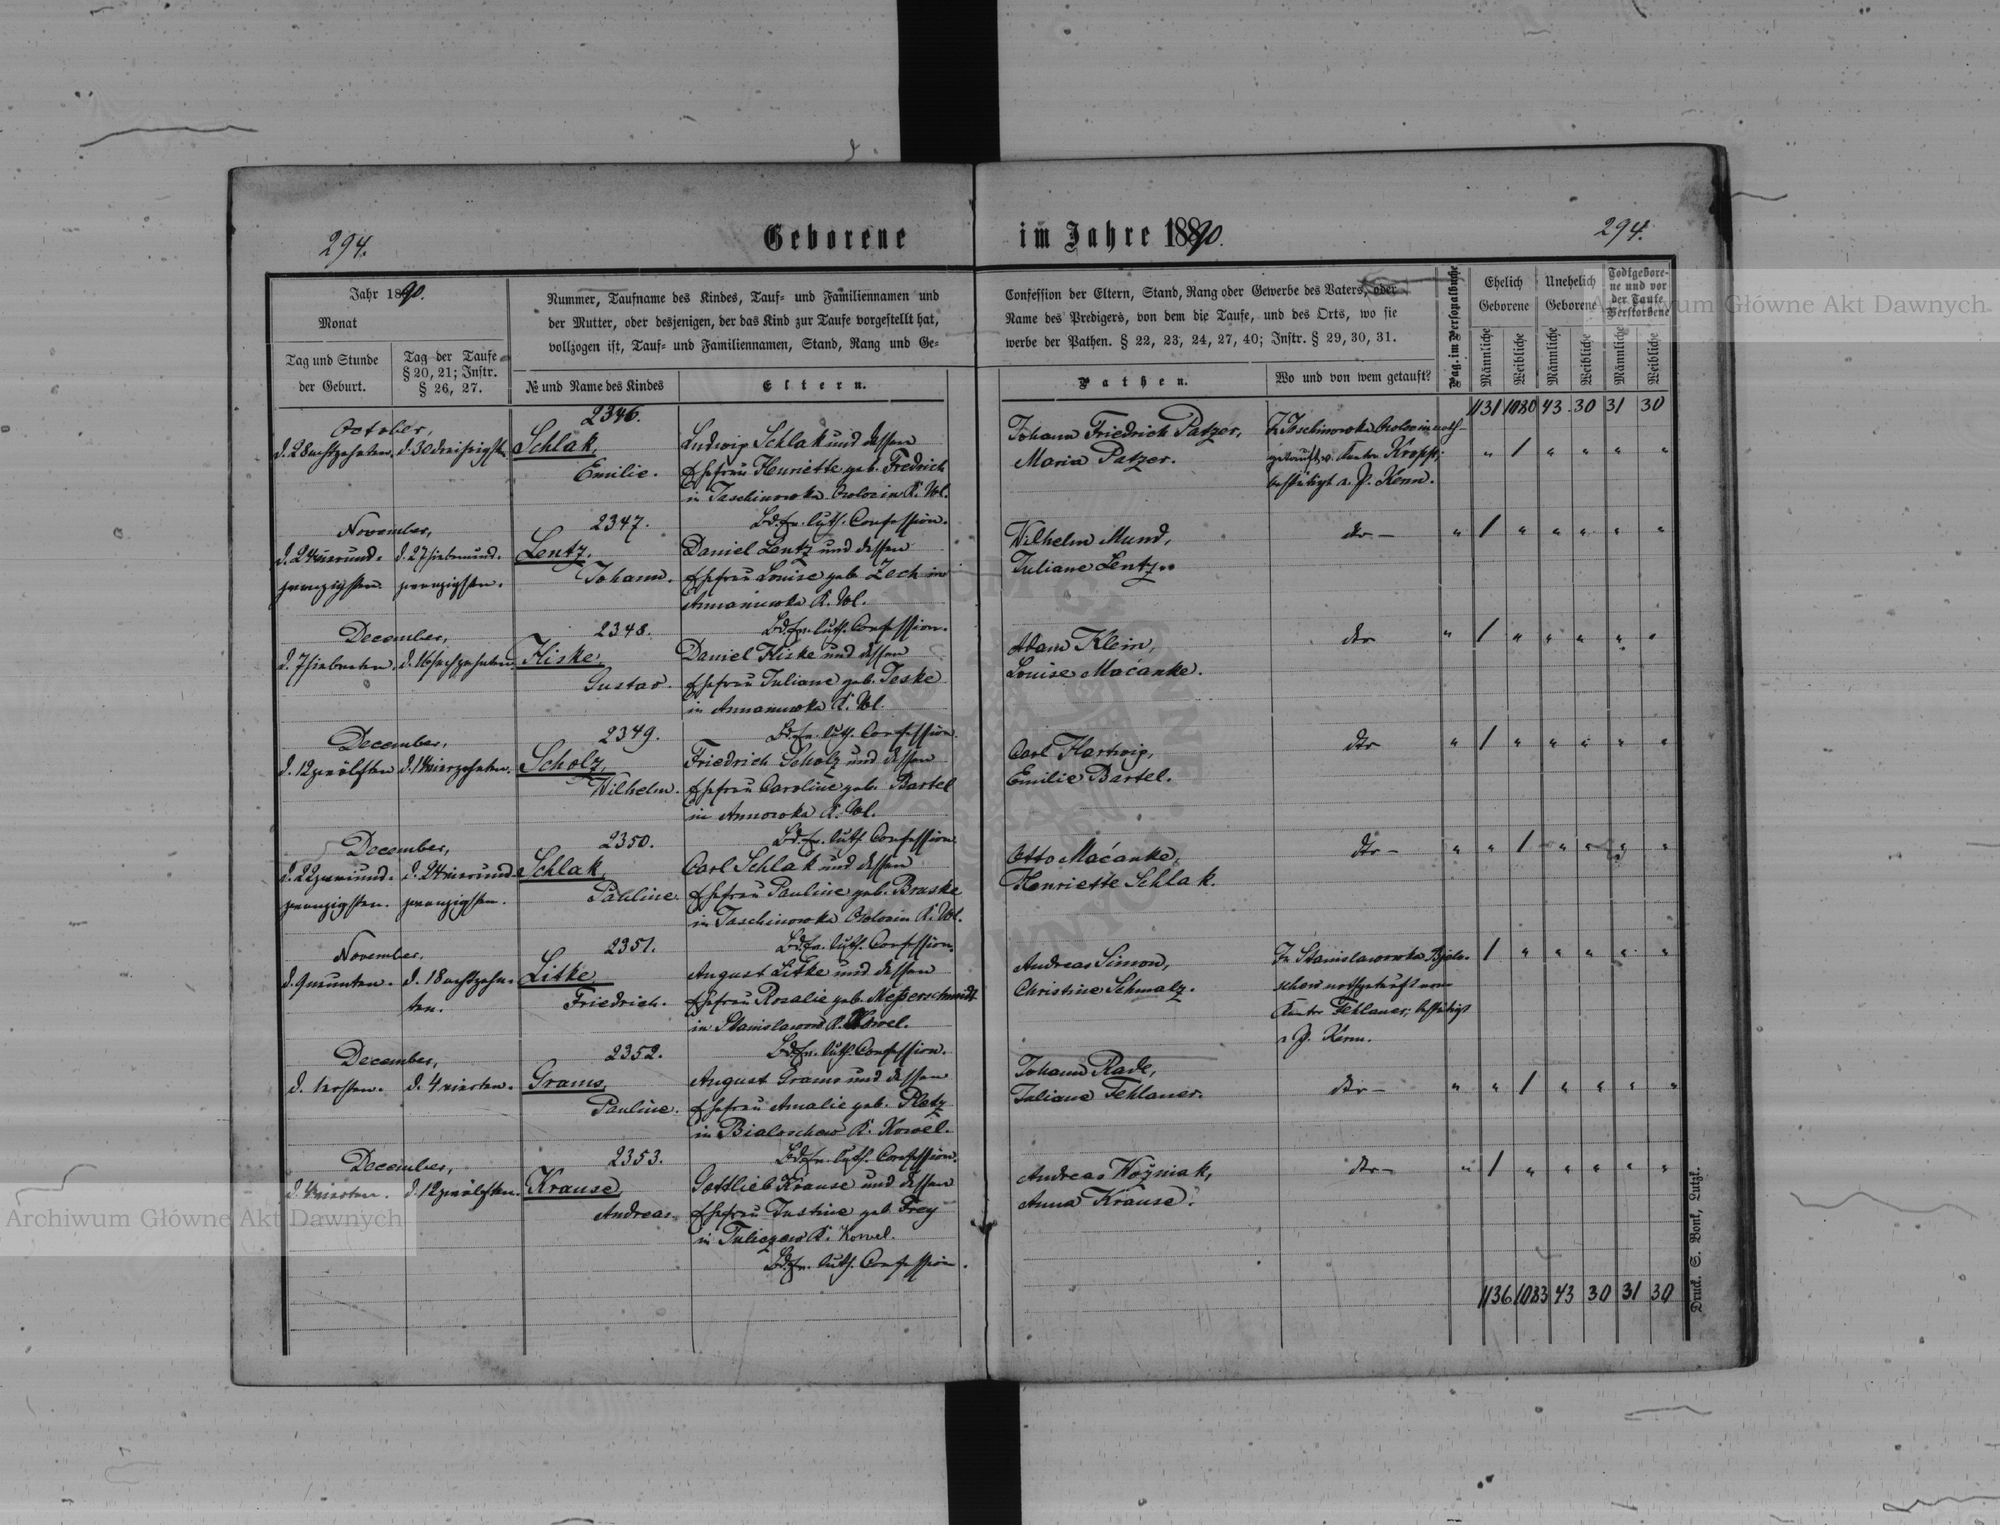 294.
Geborene
im Jahre 1890.
294.
Jahr 1890.
Monat
Tag und Stunde
der Geburt.
Tag der Taufe
§ 20, 21; Instr.
§ 26, 27.
Nummer, Taufname des Kindes, Tauf- und Familiennamen und
der Mutter, oder desjenigen, der das Kind zur Taufe vorgestellt hat,
vollzogen ist, Tauf- und Familiennamen, Stand, Rang und Ge-
№ und Name des Kindes
Eltern.
Confession der Eltern, Stand, Rang oder Gewerbe des Vaters, oder
Name des Predigers, von dem die Taufe, und des Orts, wo sie
werbe der Pathen. § 22, 23, 24, 27, 40; Instr. § 29, 30, 31.
Pathen.
Wo und von wem getauft?
Pag. im Personalbuche
Ehelich
Geborene
Unehelich
Geborene
Todtgebore-
ne und vor
der Taufe
Verstorbene
Männliche
Weibliche
Männliche
Weibliche
Männliche
Weibliche
1131 1080 43 30 31 30
October,
d. 28 achtzehnten.
d. 30 dreißigsten
2346.
Schlak,
Emilie.
Ludwig Schlak und dessen
Ehefrau Henriette geb. Fredrich
in Jaschinowka K. Wl.
Bd. Ev. luth. Confession.
Johann Friedrich Patzer,
Maria Patzer.
getauft v. Kantor Kropp;
bestätigt v. P. Kern.
" 1 " " " "
November,
d. 24 vierund-
zwanzigsten.
d. 27 siebenund-
zwanzigsten.
2347.
Lentz,
Johann.
Daniel Lentz und dessen
Ehefrau Louise geb. Zech in
Amaniewka K. Wl.
Bd. Ev. luth. Confession.
Wilhelm Mund,
Juliane Lentz.
dto —
" 1 " " " " "
December,
d. 7 siebenten.
d. 16 sechzehnten
2348.
Hiske,
Gustav.
Daniel Hiske und dessen
Ehefrau Juliane geb. Jeske
in Amaniewka K. Wl.
Bd. Ev. luth. Confession.
Adam Klein,
Louise Maćanke.
dto
" 1 " " " " "
December,
d. 12 zwölften
d. 14 vierzehnten.
2349.
Scholz,
Wilhelm.
Friedrich Scholz und dessen
Ehefrau Caroline geb. Bartel
in Annowka K. Wl.
Bd. Ev. luth. Confession.
Carl Hartwig,
Emilie Bartel.
dto
" 1 " " " " "
December,
d. 22 zweiund-
zwanzigsten.
d. 24 vierund-
zwanzigsten.
2350.
Schlak,
Pauline.
Carl Schlak und dessen
Ehefrau Pauline geb. Braske
in Jaschinowka K. Wl.
Bd. Ev. luth. Confession.
Otto Maćanke,
Henriette Schlak.
dto —
" " 1 " " " "
November,
d. 9 neunten.
d. 18 achtzehn-
ten.
2351.
Litke,
Friedrich.
August Litke und dessen
Ehefrau Rosalie geb. Meßerschmidt
in Stanislawow K. Kowel.
Bd. Ev. luth. Confession.
Andreas Simon,
Christine Schmalz.
In Stanislawowka Bjalo-
schow nothgetauft von
Kantor Fehlauer; bestätigt
v. P. Kern.
1 " " " " "
December,
d. 1 ersten.
d. 4 vierten.
2352.
Grams,
Pauline.
August Grams und dessen
Ehefrau Amalie geb. Pletz
in Bialoschow K. Kowel.
Bd. Ev. luth. Confession.
Johann Rade,
Juliane Fehlauer.
dto —
" " 1 " " " "
December,
d. 4 vierten.
d. 12 zwölften.
2353.
Krause,
Andreas.
Gottlieb Krause und dessen
Ehefrau Justine geb. Frey
in Tuliczow K. Kowel.
Bd. Ev. luth. Confession.
Andreas Woźniak,
Anna Krause.
dto —
" 1 " " " " "
1136 1083 43 30 31 30
Druck. S. Bonk, Lutzk.
Archiwum Główne Akt Dawnych
Archiwum Główne Akt Dawnych